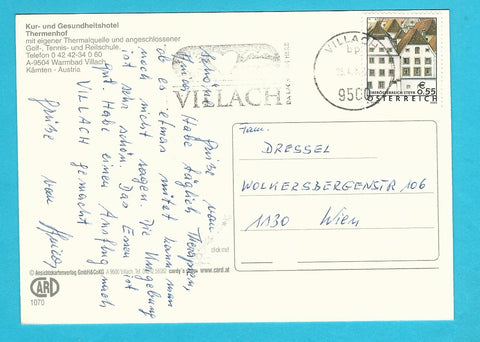 Kur- und Gesundheitshotel
Thermenhof
mit eigener Thermalquelle und angeschlossener
Golf-, Tennis- und Reitschule
Telefon 0 42 42-34 0 60
A-9504 Warmbad Villach
Kärnten - Austria
VILLACH
VILLACH
9500
€ 0,55
ÖSTERREICH
Fam.
DRESSEL
WOLKERSBERGENSTR 106
1130 Wien
Grüße vom
Habe täglich Therapien,
ob es etwas nützt kann man
noch nicht sagen. Die Umgebung
ist sehr schön. Das Essen ist
gut. Habe einen Ausflug nach
VILLACH gemacht
Grüße von
© Ansichtskartenverlag GmbH&CoKG
www.card.at
CARD
1070